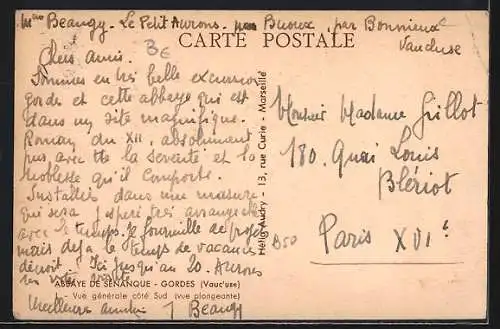 Mme Beaugy - Le Petit Aurons. par Buoux, par Bonnieux
Vaucluse
CARTE POSTALE
Chers amis.
Sommes en très belle excursion
Gordes et cette abbaye qui est
dans un site magnifique.
Roman du XII, absolument
pur avec toute la sévérité et la
noblesse qu'il comporte.
Installés dans une masure
qui sera j'espère très arrangée
avec le temps. Je fourmille de projets
mais déjà le temps de vacances
décroît. Ici jusqu'au 20. Aurons
ABBAYE DE SENANQUE - GORDES (Vauc'use)
Vue générale côté Sud (vue plongeante)
Meilleures amitiés J Beaugy
Hélio Audry - 13, rue Curie - Marseille
Monsieur Madame Grillot
180. Quai Louis
Blériot
Paris XVIe